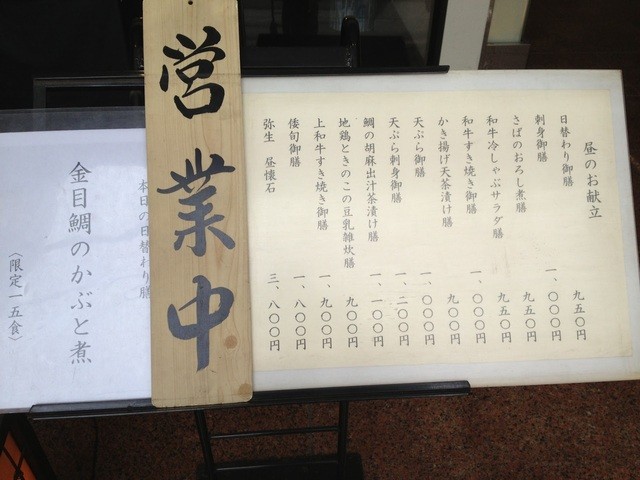 昼のお献立
日替わり御膳 九五〇円
刺身御膳 一、〇〇〇円
さばのおろし煮膳 九五〇円
和牛冷しゃぶサラダ膳 九五〇円
和牛すき焼き御膳 一、〇〇〇円
かき揚げ天茶漬け膳 九〇〇円
天ぷら御膳 一、〇〇〇円
天ぷら刺身御膳 一、二〇〇円
鯛の胡麻出汁茶漬け膳 一、一〇〇円
地鶏ときのこの豆乳雑炊膳 九〇〇円
上和牛すき焼き御膳 一、九〇〇円
倭旬御膳 一、八〇〇円
弥生 昼懐石 三、八〇〇円
営業中
本日の日替わり膳
金目鯛のかぶと煮
〈限定一五食〉